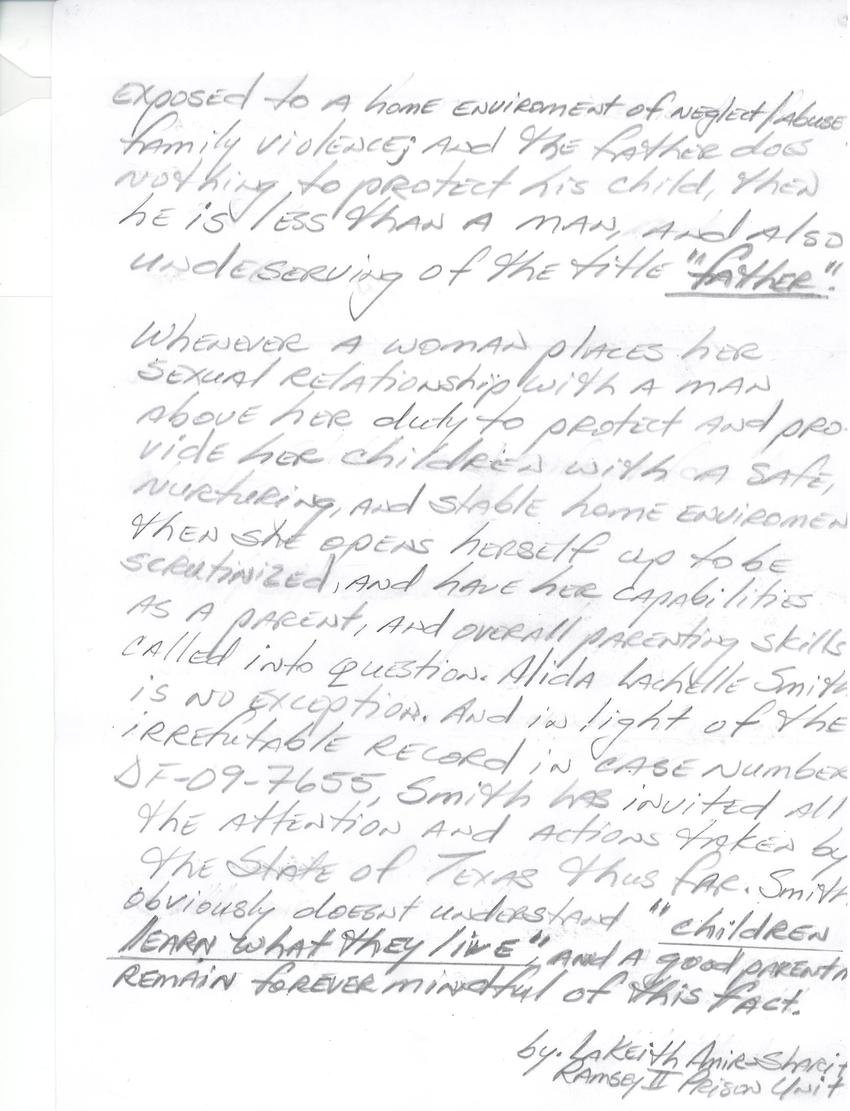 exposed to a home enviroment of neglect/abuse
family violence; and the father does
nothing to protect his child, then
he is less than a man, and also
undeserving of the title "father".
Whenever a woman places her
sexual relationship with a man
above her duty to protect and pro-
vide her children with a safe,
nurturing, and stable home enviromen
then she opens herself up to be
scrutinized, and have her capabilities
as a parent, and overall parenting skills
called into question. Alida Lachelle Smith
is no exception. And in light of the
irrefutable record in case number
DF-09-7655, Smith has invited all
the attention and actions taken by
the State of Texas thus far. Smith
obviously doesnt understand "children
learn what they live", and a good parent
remain forever mindful of this fact.
by. LaKeith Amir-Sharif
Ramsey II Prison Unit